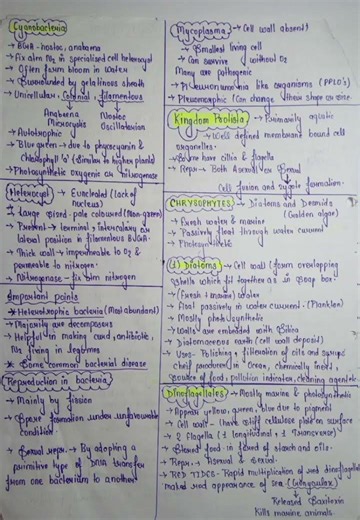 Cyanobacteria
→ BGA - nostoc, anabaena
→ Fix atm N₂ in specialised cell heterocyst
→ Often form bloom in water
→ Surrounded by gelatinous sheath
→ Unicellular, Colonial, filamentous
Anabaena Nostoc
Microcystis Oscillatorian
→ Autotrophic
→ Blue green → due to phycocyanin &
chlorophyll 'a' (Similar to higher plants)
→ Photosynthetic oxygenic
nitrogenase
Heterocyst → Enucleated (lack of
nucleus)
→ Large sized - pale coloured (Non-green)
→ Present → terminal, intercalary or
lateral position in filamentous BGA.
→ Thick wall → impermeable to O₂ &
permeable to nitrogen.
→ Nitrogenase - fix atm nitrogen
Important points
* Heterotrophic bacteria (Most abundant)
→ Majority are decomposers
→ Helpful in making curd, antibiotic,
N₂ fixing in legumes
* Some common bacterial disease
Reproduction in bacteria
→ Mainly by fission
→ Spore formation under unfavourable
condition
→ Sexual repr. → By adopting a
primitive type of DNA transfer
from one bacterium to another
Mycoplasma → Cell wall absent
→ Smallest living cell
→ Can survive without O₂
Many are pathogenic
→ Pleuropneumonia like organisms (PPLO's)
→ Pleomorphic (Can change their shape or size
Kingdom Protista → Primarily aquatic
→ Well defined membrane bound cell
organelles.
→ Some have cilia & flagella
→ Repr → Both Asexual or Sexual
Cell fusion and zygote formation.
CHRYSOPHYTES → Diatoms and Desmids
(Golden algae)
→ Fresh water & marine
→ Passively float through water current
→ Photosynthetic
(i) Diatoms → Cell wall (form overlapping
shells which fit together as in soap box
→ (Fresh + marine) water
→ Float passively in water current. (Plankton)
→ Mostly photosynthetic
→ Walls are embedded with Silica
→ Diatomaceous earth (cell wall deposit)
→ Uses - Polishing, filteration of oils and syrups
cheif producers (in Ocean, chemically inert,
source of food, pollution indicator, cleaning agent.
Dinoflagellates → Mostly marine & photosynthetic
→ Appear yellow, green, blue due to pigment
→ Cell wall → have stiff cellulose plates on surface
→ 2 Flagella (1 longitudinal, 1 transverse)
→ Stored food in form of starch and oils.
→ Repr → Asexual & Sexual
→ RED TIDES → Rapid multiplication of red dinoflagellates
maked red appearance of sea. (Gonyaulax)
→ Released
Kills marine animals